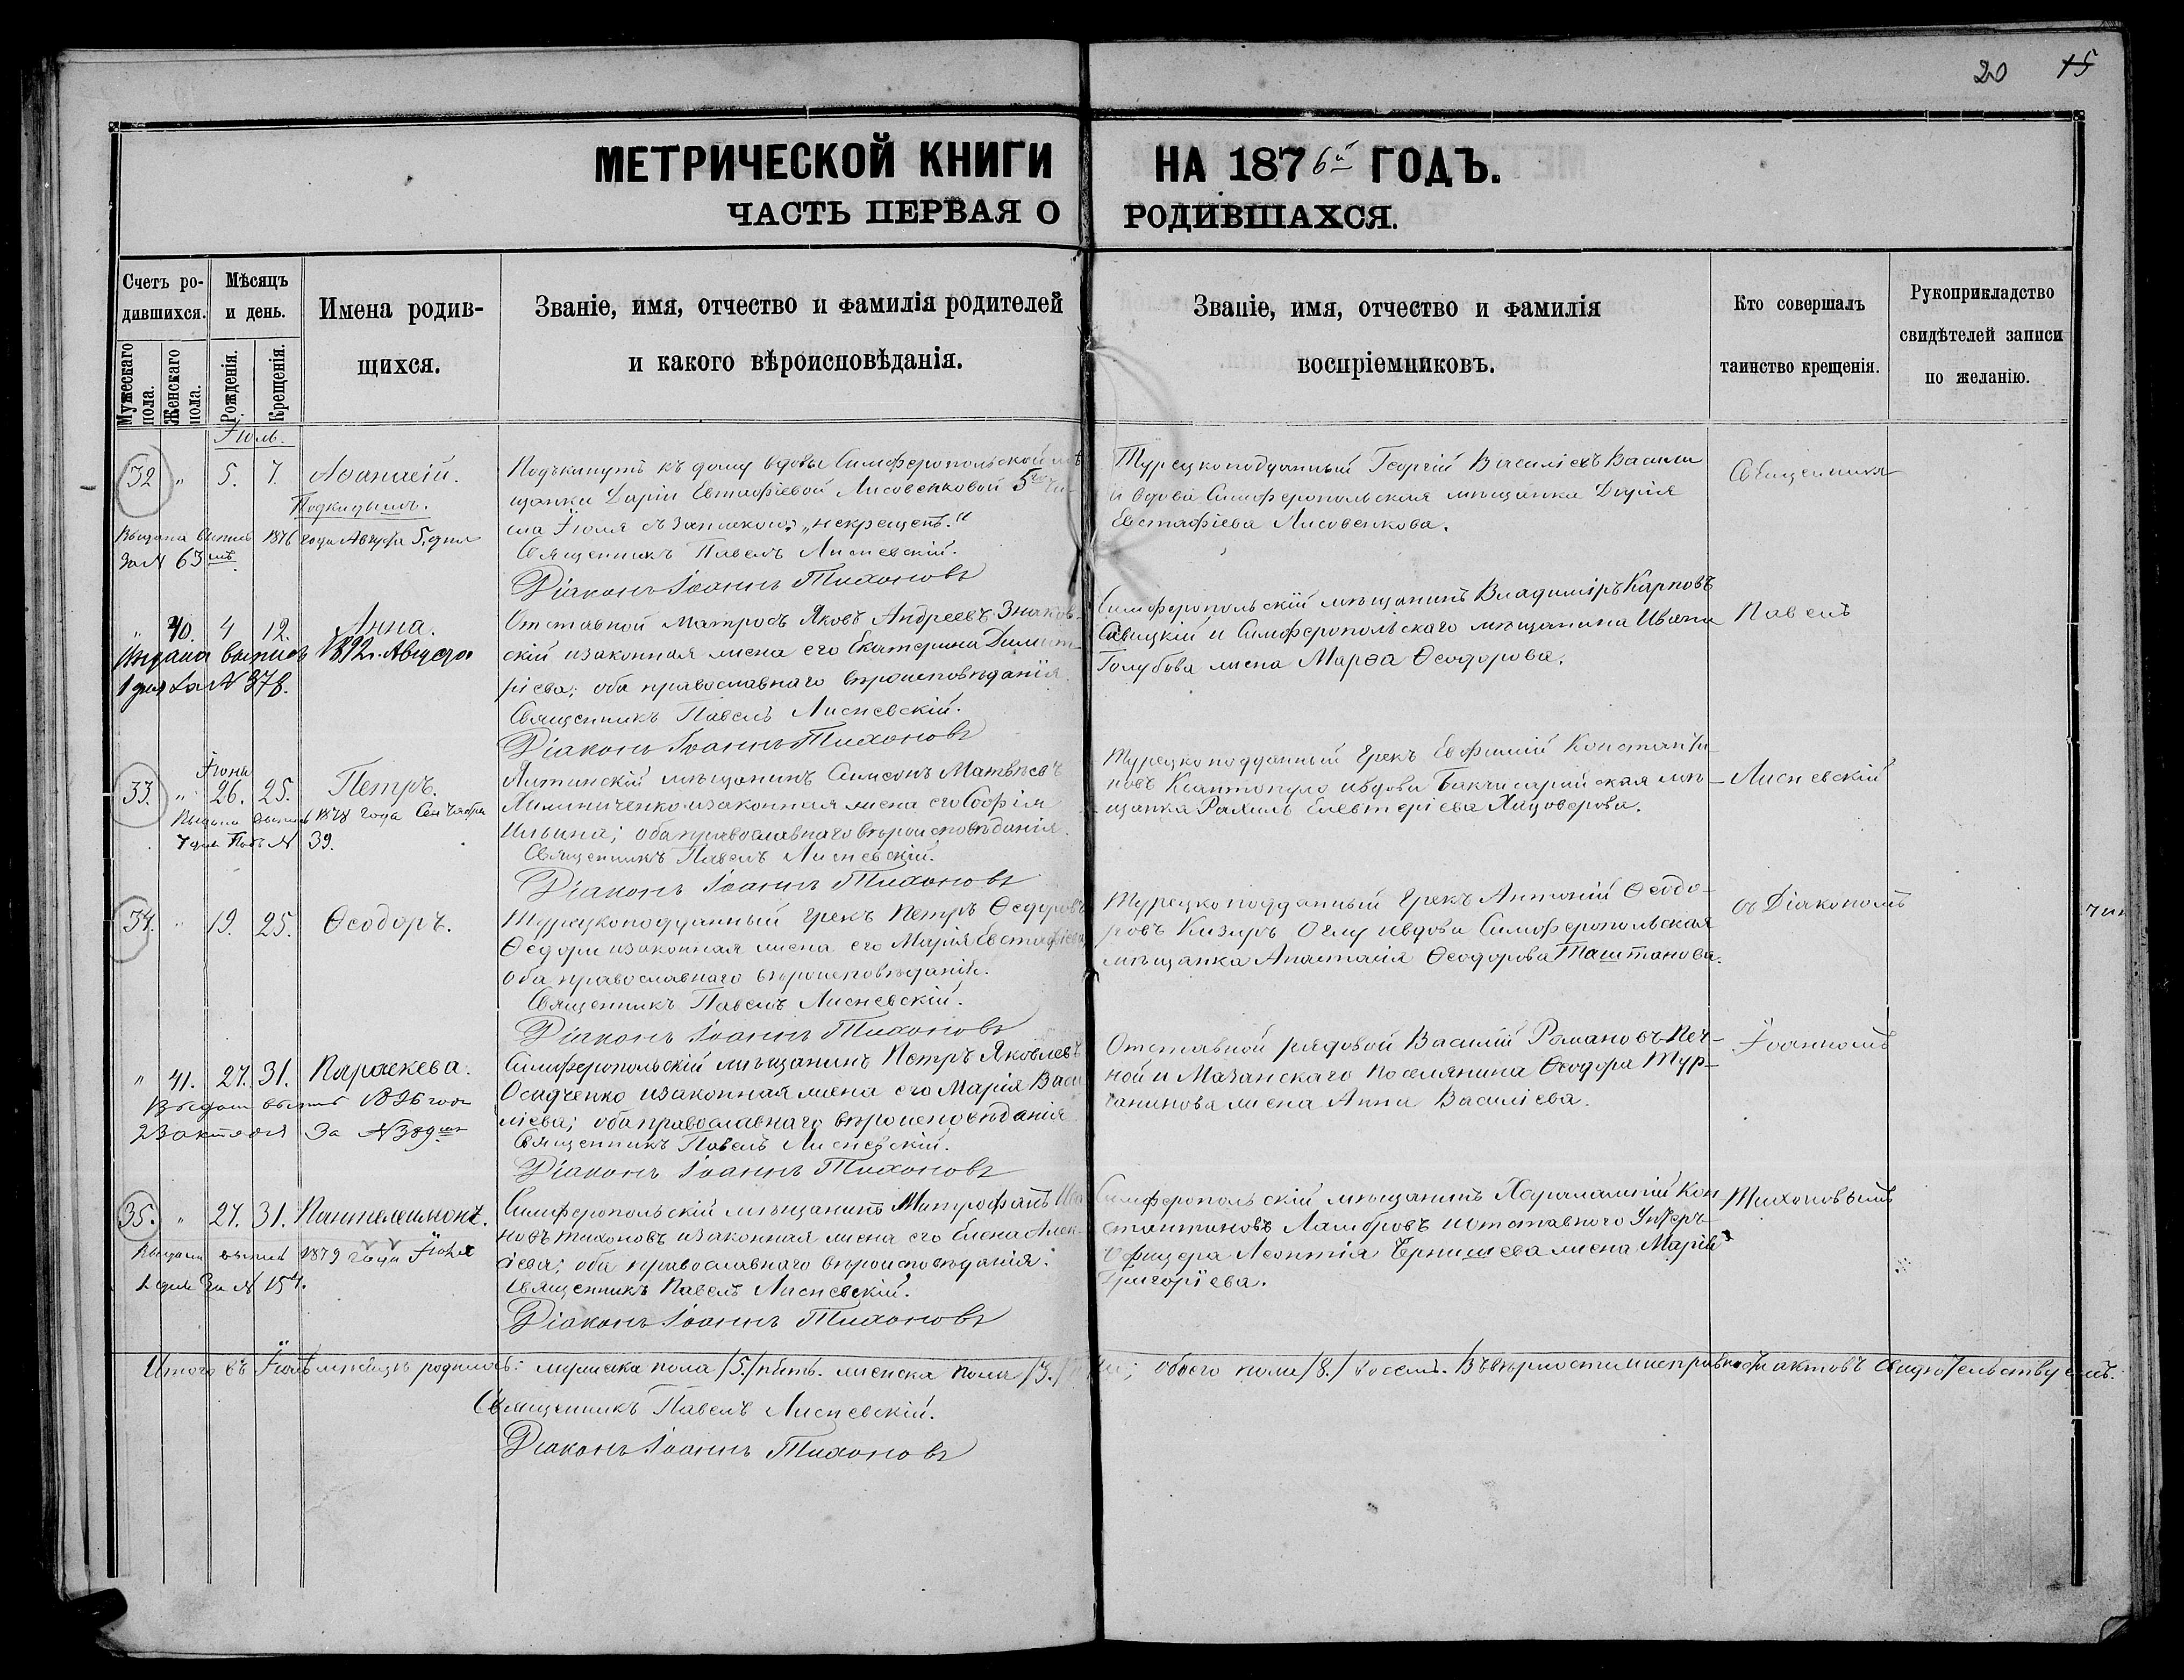 20 15
МЕТРИЧЕСКОЙ КНИГИ НА 1876й ГОДЪ.
ЧАСТЬ ПЕРВАЯ О РОДИВШАХСЯ.
Счетъ ро-
дившихся.
Мужескаго пола.
Женскаго пола.
Мѣсяцъ
и день.
Рожденія.
Крещенія.
Имена родив-
щихся.
Званіе, имя, отчество и фамилія родителей
и какого вѣроисповѣданія.
Званіе, имя, отчество и фамилія
воспріемниковъ.
Кто совершалъ
таинство крещенія.
Рукоприкладство
свидѣтелей записи
по желанію.
Іюль.
32 " 5. 7. Аѳанасій.
Подкидышъ.
Выдана выпись 1876 года Августа 5. дня
за № 63
Подъкинутъ къ дому вдовы Симферопольской мѣ
щанки Даріи Евстафіевой Лисовенковой 5го чи-
сла Іюля съ запискою: „некрещенъ."
Священникъ Павелъ Лисневскій.
Діаконъ Іоаннъ Тихоновъ
Турецкоподданный Георгій Василіевъ Васили
и вдова Симферопольская мѣщанка Дарія
Евстафіева Лисовенкова.
Священникъ
" 40. 4 12. Анна.
Выдана выпись 1892 г. Августа
1 дня за № 378.
Отставной матросъ Яковъ Андреевъ Знаков-
скій и законная жена его Екатерина Димит-
ріева; оба православнаго вѣроисповѣданія.
Священникъ Павелъ Лисневскій.
Діаконъ Іоаннъ Тихоновъ
Симферопольскій мѣщанинъ Владиміръ Карповъ
Савицкій и Симферопольскаго мѣщанина Ивана
Голубова жена Марѳа Ѳеодорова.
Павелъ
Іюня
33. " 26. 25. Петръ.
Выдана выпись 1878 года Сентября
7 дня Подъ № 39.
Ялтинскій мѣщанинъ Симеонъ Матвѣевъ
Химниченко и законная жена его Софія
Ильина; оба православнаго вѣроисповѣданія.
Священникъ Павелъ Лисневскій.
Діаконъ Іоаннъ Тихоновъ
Турецкоподданный Грекъ Евфимій Константи-
новъ Ксантопуло и вдова Бакчисарайская мѣ-
щанка Рахиль Елевтеріева Хацоверова.
Лисневскій
34. " 19. 25. Ѳеодоръ.
Турецкоподданный грекъ Петръ Ѳедоровъ
Ѳедори и законная жена его Марія Евстафіева
оба православнаго вѣроисповѣданія.
Священникъ Павелъ Лисневскій.
Діаконъ Іоаннъ Тихоновъ
Турецкоподданный Грекъ Антоній Ѳеодо-
ровъ Кизиръ Оглу и вдова Симферопольская
мѣщанка Анастасія Ѳеодорова Таштанова.
съ Діакономъ
" 41. 27. 31. Параскева.
Выдана выпись 1896 года
23 октября за № 389
Симферопольскій мѣщанинъ Петръ Яковлевъ
Осадченко и законная жена его Марія Васи
ліева; оба православнаго вѣроисповѣданія
Священникъ Павелъ Лисневскій.
Діаконъ Іоаннъ Тихоновъ
Отставной рядовой Василій Романовъ Печ-
ной и Мазанскаго поселянина Ѳеодора Тур-
чанинова жена Анна Василіева.
Іоанномъ
35. " 27. 31. Пантелеимонъ.
Выдана выпись 1879 года Іюля
1 дня За № 154.
Симферопольскій мѣщанинъ Митрофанъ Ива
новъ Тихоновъ и законная жена его Елена Алек-
сіева; оба православнаго вѣроисповѣданія.
Священникъ Павелъ Лисневскій.
Діаконъ Іоаннъ Тихоновъ
Симферопольскій мѣщанинъ Харалампій Кон
стантиновъ Ламбровъ и отставного Унтеръ-
офицера Леонтія Чернышева жена Марія
Григоріева.
Тихоновымъ
Итого въ Іюлѣ мѣсяцѣ родилось: мужеска пола /5./ пять. женска пола /3./ обоего пола /8./ восемь. Въ вѣрности и исправности актовъ свидѣтельствуемъ.
Священникъ Павелъ Лисневскій.
Діаконъ Іоаннъ Тихоновъ